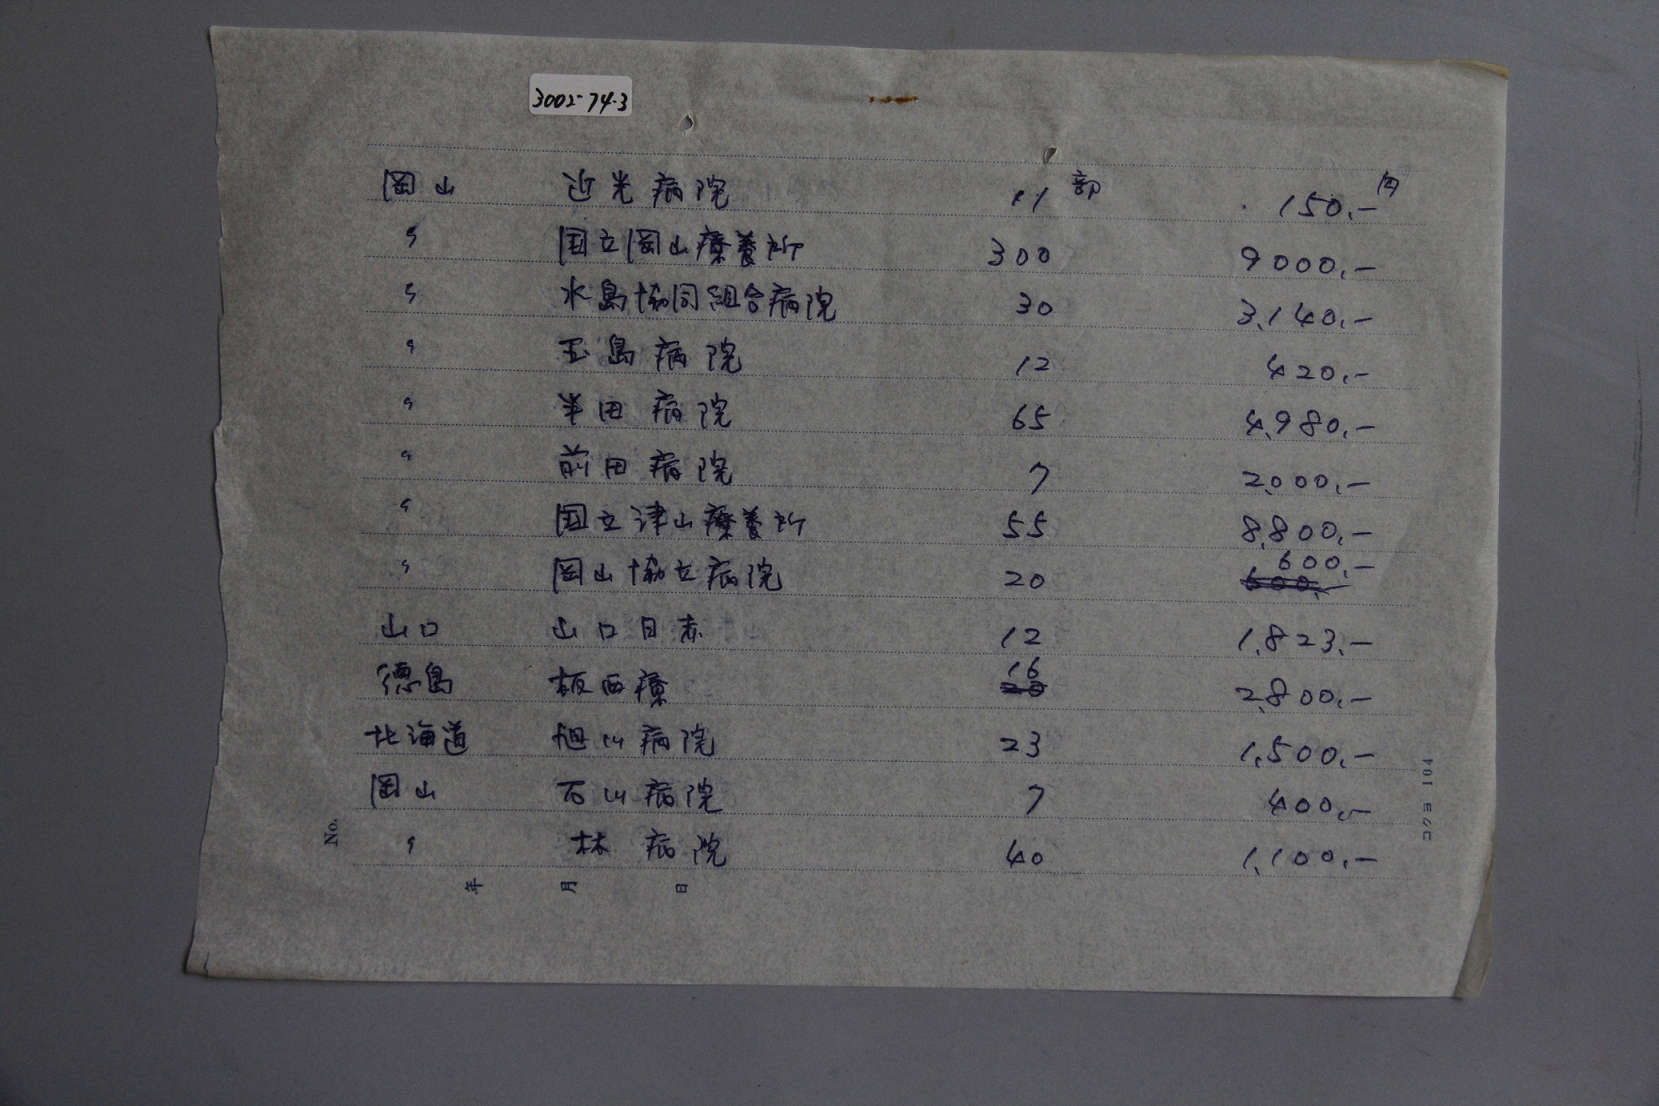 3002-74-3
岡山 近光病院 11部 150.-円
〃 国立岡山療養所 300 9000.-
〃 水島協同組合病院 30 3,140.-
〃 玉島病院 12 420.-
〃 半田病院 65 4,980.-
〃 前田病院 7 2,000.-
〃 国立津山療養所 55 8,800.-
〃 岡山協立病院 20 600.-
山口 山口日赤 12 1,823.-
徳島 板西療 16 2,800.-
北海道 旭山病院 23 1,500.-
岡山 石山病院 7 400.-
〃 林病院 40 1,100.-
No.
年 月 日
コクヨ 104